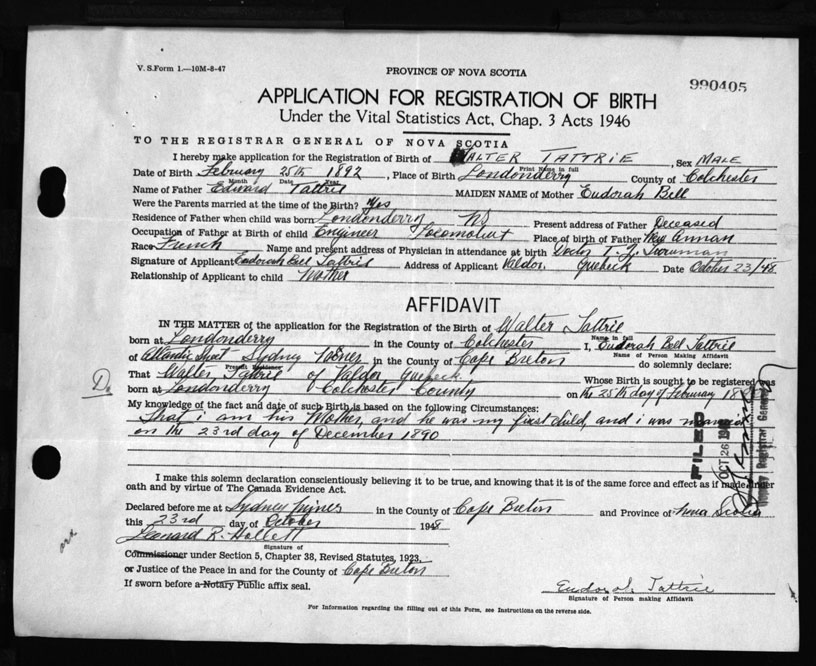 V. S. Form 1.—10M-8-47
PROVINCE OF NOVA SCOTIA
990405
APPLICATION FOR REGISTRATION OF BIRTH
Under the Vital Statistics Act, Chap. 3 Acts 1946
TO THE REGISTRAR GENERAL OF NOVA SCOTIA
I hereby make application for the Registration of Birth of WALTER TATTRIE, Sex MALE
Print Name in full
Date of Birth February 25th 1892, Place of Birth Londonderry County of Colchester
Month Date Year
Name of Father Edward Tattrie MAIDEN NAME of Mother Eudorah Bell
Were the Parents married at the time of the Birth? Yes
Residence of Father when child was born Londonderry NS Present address of Father Deceased
Occupation of Father at Birth of child Engineer Place of birth of Father New Annan
Race French Name and present address of Physician in attendance at birth Doctor T.
Signature of Applicant Eudorah Bell Tattrie Address of Applicant Valdor, Quebeck Date October 23/48
Relationship of Applicant to child Mother
AFFIDAVIT
IN THE MATTER of the application for the Registration of the Birth of Walter Tattrie
Name in full
born at Londonderry in the County of Colchester I, Eudorah Bell Tattrie
Name of Person Making Affidavit
of Atlantic Street Sydney Mines in the County of Cape Breton do solemnly declare:
Present Residence
That Walter Tattrie of Valdor Quebeck Whose Birth is sought to be registered was
born at Londonderry Colchester County on the 25th day of February
My knowledge of the fact and date of such Birth is based on the following Circumstances:
That i am his Mother, and he was my first child, and i was married
on the 23rd day of December 1890
FILED
OCT 26 1948
Deputy Registrar General
I make this solemn declaration conscientiously believing it to be true, and knowing that it is of the same force and effect as if made under
oath and by virtue of The Canada Evidence Act.
Declared before me at Sydney Mines in the County of Cape Breton and Province of Nova Scotia
this 23rd day of October 1948
Leonard R. Hollett
Signature of
Commissioner under Section 5, Chapter 38, Revised Statutes, 1923.
or Justice of the Peace in and for the County of Cape Breton
If sworn before a Notary Public affix seal.
Tattrie
Signature of Person making Affidavit
For Information regarding the filling out of this Form, see Instructions on the reverse side.